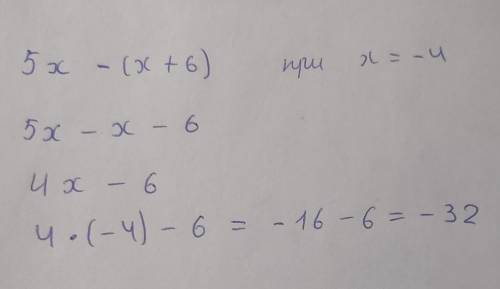 5x - (x + 6) при x = -4
5x - x - 6
4x - 6
4 · (-4) - 6 = -16 - 6 = -32